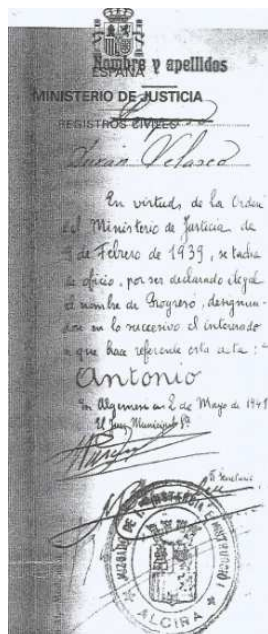 Nombre y apellidos
ESPAÑA
MINISTERIO DE JUSTICIA
REGISTROS CIVILES
Durán Velasco
En virtud de la Orden
del Ministerio de Justicia de
de Febrero de 1939, se tacha
de oficio, por ser declarado ilegal
el nombre de Progreso, designan-
dose en lo sucesivo el interesado
a que hace referencia esta acta:
Antonio
2 de Mayo de
El Juez Municipal
El Secretario
ALCIRA